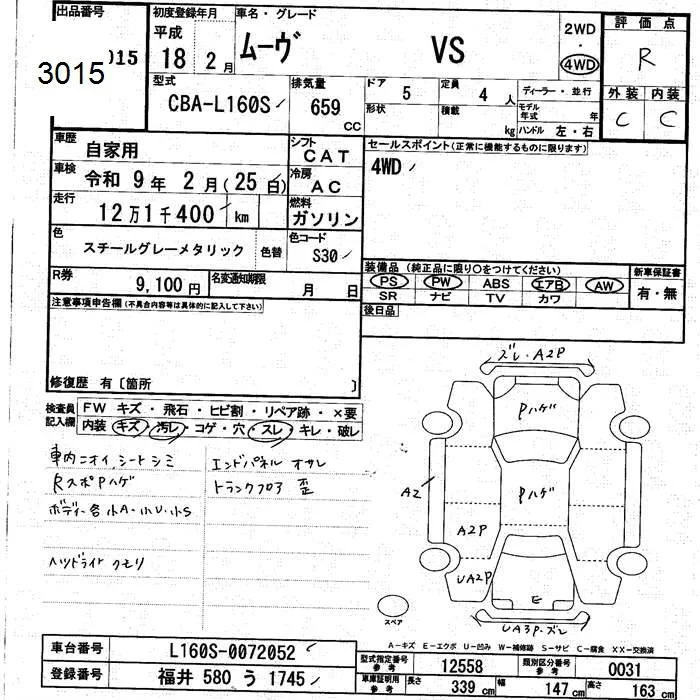 出品番号
015
3015
初度登録年月
平成
18 2月
車名・グレード
ムーヴ VS
2WD
・
4WD
評価点
R
外装 内装
C C
型式
CBA-L160S
排気量
659
CC
ドア
5
形状
定員
4人
積載
kg
ディーラー・並行
モデル年式 年
ハンドル 左・右
車歴
自家用
シフト
CAT
車検
令和 9年 2月(25日)
冷房
AC
走行
12万1千400 km
燃料
ガソリン
色
スチールグレーメタリック
色替
色コード
S30
R券
9,100円
名変通知期限
月 日
セールスポイント(正常に機能するものに限ります)
4WD
装備品 (純正品に限り○をつけてください)
PS PW ABS エアB AW
SR ナビ TV カワ
新車保証書
有・無
後日品
注意事項申告欄(不具合内容等は具体的に記入して下さい)
修復歴 有〔箇所 〕
検査員記入欄
FW キズ・飛石・ヒビ割・リペア跡・×要
内装 キズ・汚レ・コゲ・穴・スレ・キレ・破レ
車内ニオイ、シートシミ
RスポPハゲ
ボディー各小A・小U・小S
ヘッドライトクモリ
エンドパネル オサレ
トランクフロア 歪
ズレ・A2P
Pハゲ
Pハゲ
A2
A2P
UA2P
E
UA3P・ズレ
スペア
A−キズ E−エクボ U−凹み W−補修跡 S−サビ C−腐食 XX−交換済
車台番号
L160S-0072052
登録番号
福井 580 う 1745
型式指定番号
参考
12558
類別区分番号
参考
0031
車庫証明用
参考
長さ 339 cm
幅 147 cm
高さ 163 cm